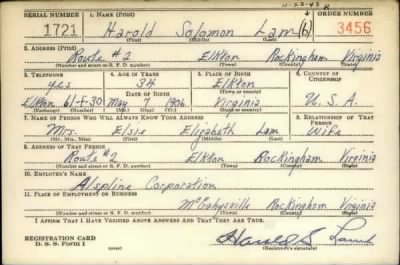 11-23-43
SERIAL NUMBER 1. NAME (Print) ORDER NUMBER
1721 Harold Solomon Lam (6) 3456
(First) (Middle) (Last)
2. ADDRESS (Print)
Route #2 Elkton Rockingham Virginia
(Number and street or R. F. D. number) (Town) (County) (State)
3. TELEPHONE 4. AGE IN YEARS 5. PLACE OF BIRTH 6. COUNTRY OF CITIZENSHIP
yes 34 Elkton
DATE OF BIRTH
Elkton 61-F-30 May 7 1906 Virginia U. S. A.
(Mo.) (Day) (Yr.)
7. NAME OF PERSON WHO WILL ALWAYS KNOW YOUR ADDRESS 8. RELATIONSHIP OF THAT PERSON
Mrs. Elsie Elizabeth Lam Wife
(Mr., Mrs., Miss) (First) (Middle) (Last)
9. ADDRESS OF THAT PERSON
Route #2 Elkton Rockingham Virginia
(Number and street or R. F. D. number) (Town) (County) (State)
10. EMPLOYER'S NAME
Corporation
11. PLACE OF EMPLOYMENT OR BUSINESS
McGaheysville Rockingham Virginia
(Number and street or R. F. D. number) (Town) (County) (State)
I AFFIRM THAT I HAVE VERIFIED ABOVE ANSWERS AND THAT THEY ARE TRUE.
REGISTRATION CARD
D. S. S. Form 1 (over) Harold S Lam
(Registrant's signature)